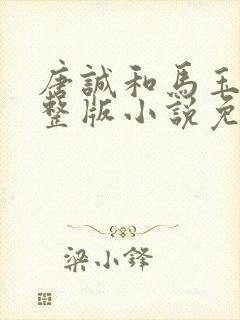 唐誠和馬玉
整版小說免
梁小鋒